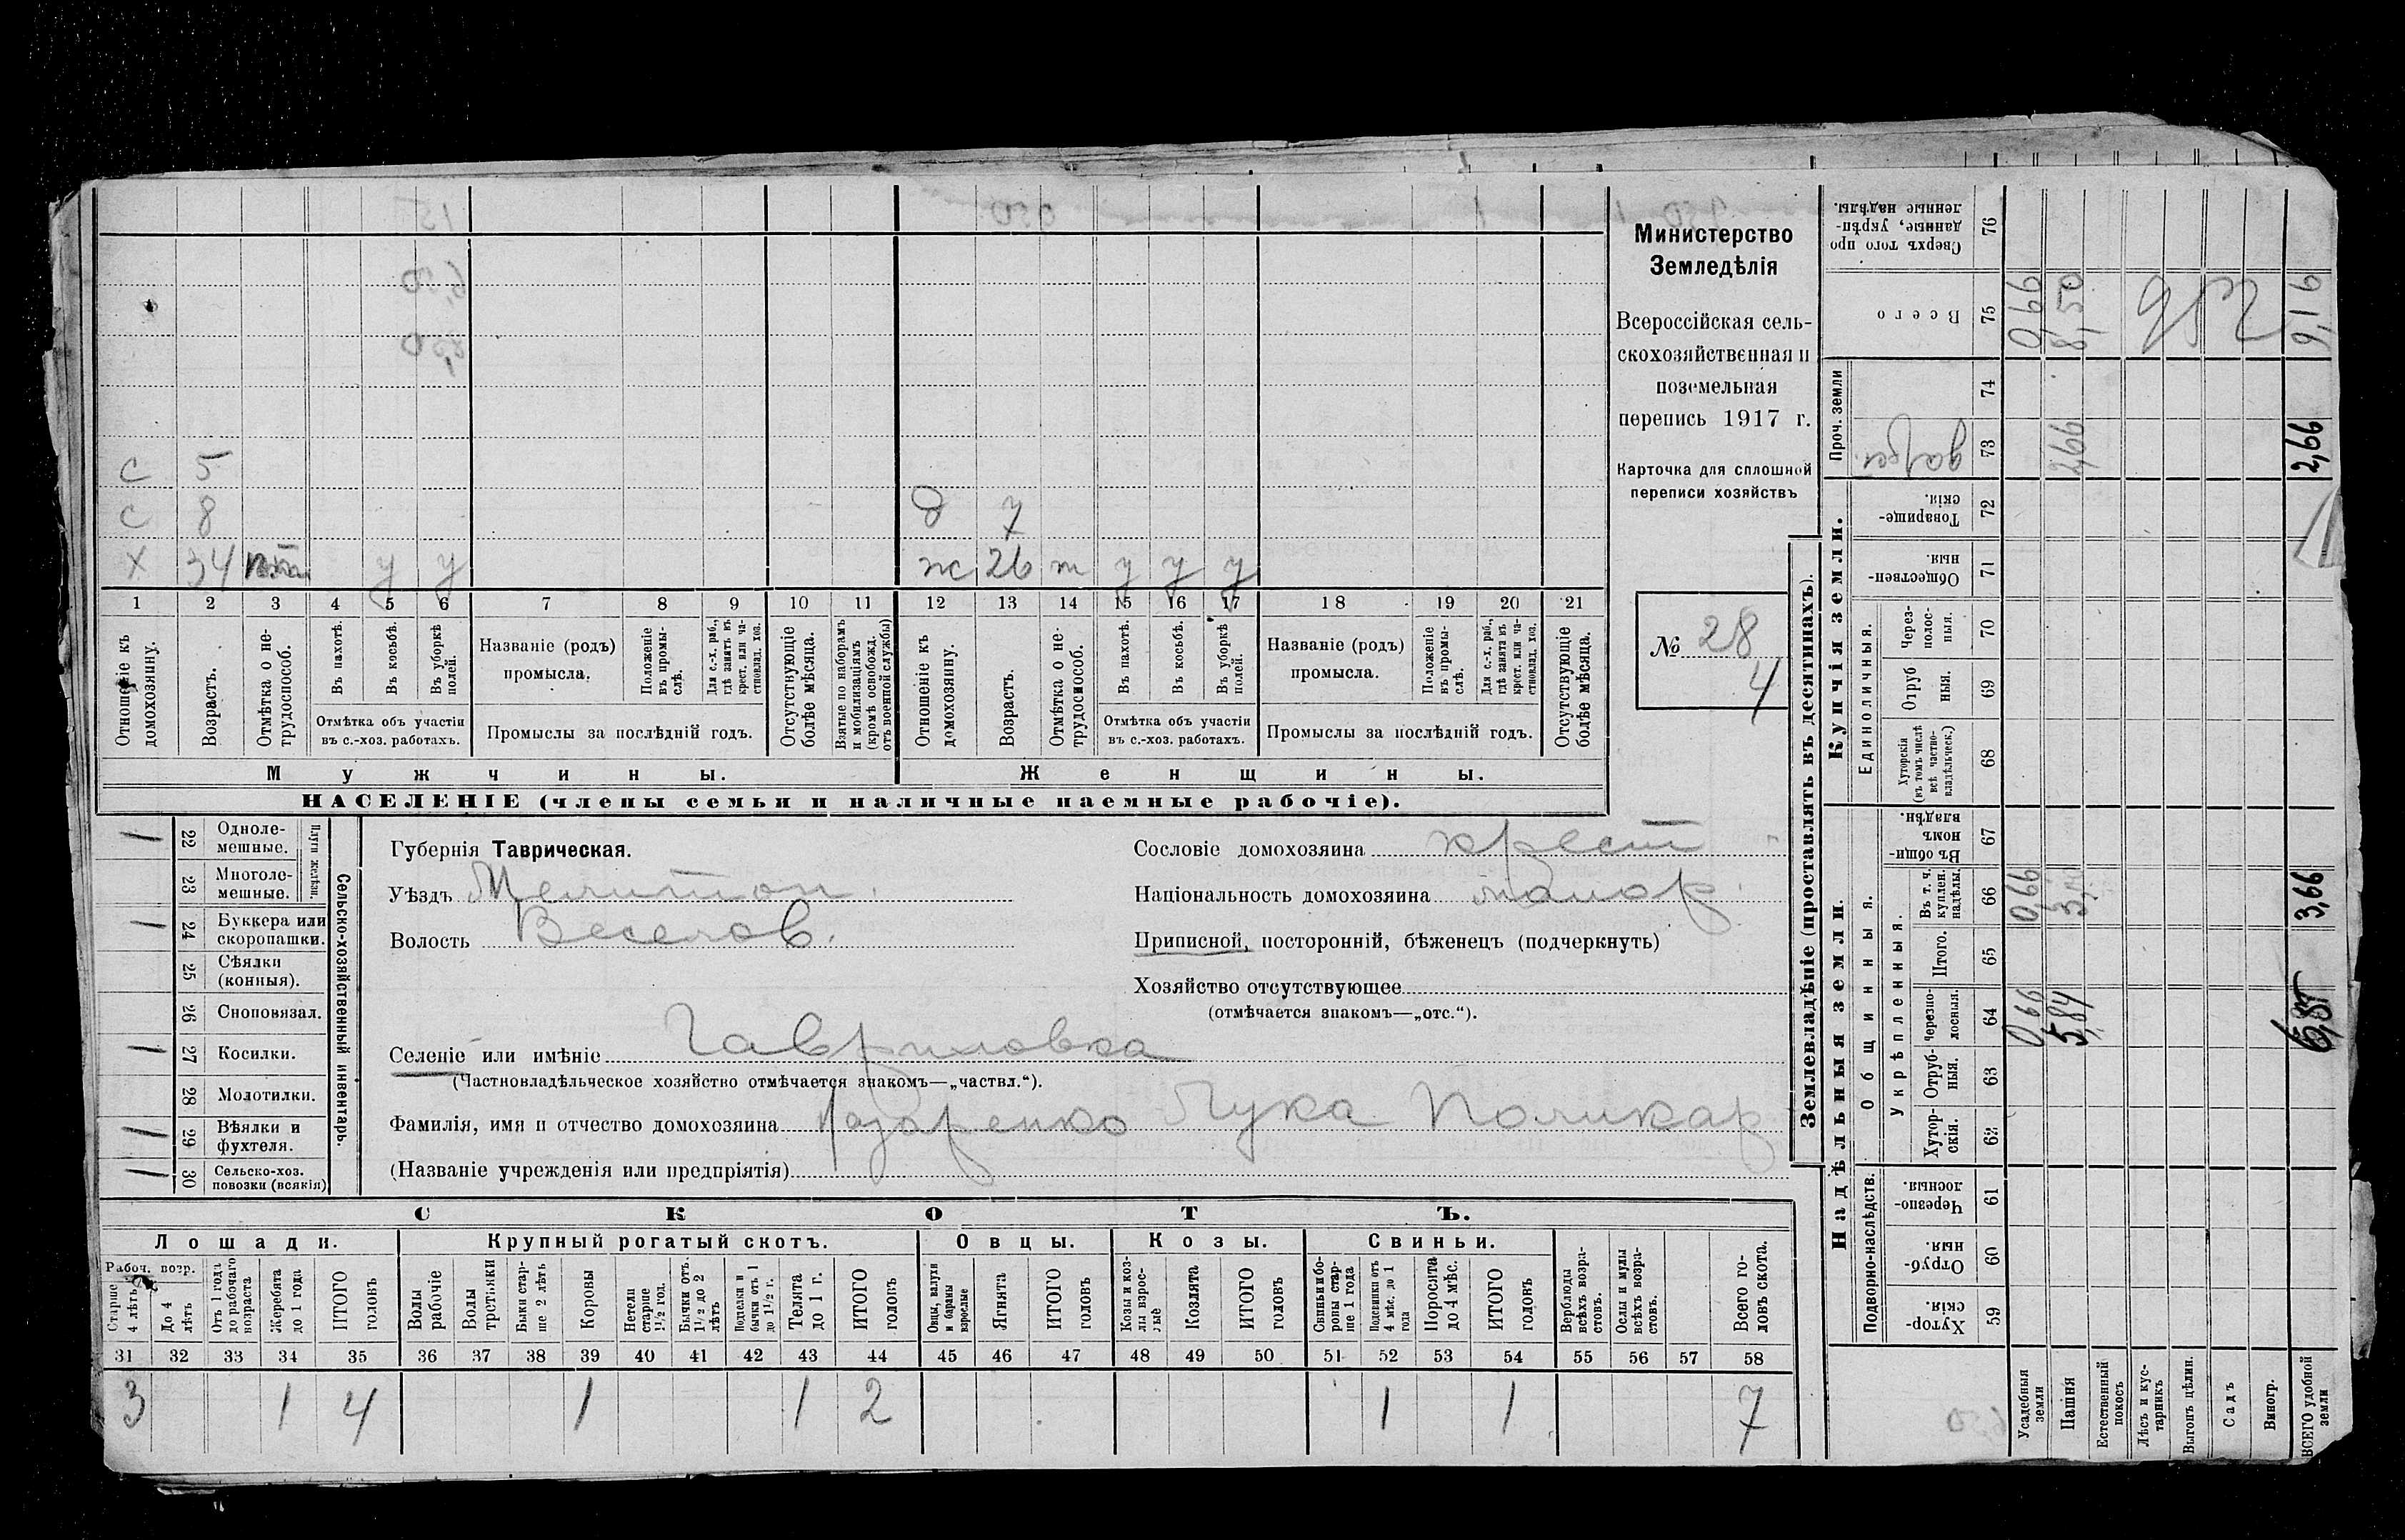 Министерство
Земледѣлія
Всероссійская сель-
скохозяйственная и
поземельная
перепись 1917 г.
Карточка для сплошной
переписи хозяйствъ
№ 28
4
с 5
с 8 д 7
х 34 у у ж 26 т у у у
1 2 3 4 5 6 7 8 9 10 11 12 13 14 15 16 17 18 19 20 21
Отношеніе къ домохозяину.
Возрастъ.
Отмѣтка о не-трудоспособ.
Въ пахотѣ.
Въ косьбѣ.
Въ уборкѣ полей.
Отмѣтка объ участіи въ с.-хоз. работахъ.
Названіе (родъ) промысла.
Положеніе въ промы-слѣ.
Для с.-х. раб., гдѣ занятъ въ крест. или ча-стновлад. хоз.
Промыслы за послѣдній годъ.
Отсутствующіе болѣе мѣсяца.
Взятые по наборамъ и мобилизаціямъ (кромѣ освобожд. отъ военной службы)
Отношеніе къ домохозяину.
Возрастъ.
Отмѣтка о не-трудоспособ.
Въ пахотѣ.
Въ косьбѣ.
Въ уборкѣ полей.
Отмѣтка объ участіи въ с.-хоз. работахъ.
Названіе (родъ) промысла.
Положеніе въ промы-слѣ.
Для с.-х. раб., гдѣ занята въ крест. или ча-стновлад. хоз.
Промыслы за послѣдній годъ.
Отсутствующіе болѣе мѣсяца.
Мужчины. Женщины.
НАСЕЛЕНІЕ (члены семьи и наличные наемные рабочіе).
Сельско-хозяйственный инвентарь.
Плуги желѣзн.
1 22 Одноле-мешные.
23 Многоле-мешные.
1 24 Буккера или скоропашки.
25 Сѣялки (конныя).
26 Сноповязал.
1 27 Косилки.
28 Молотилки.
1 29 Вѣялки и фухтеля.
1 30 Сельско-хоз. повозки (всякія)
Губернія Таврическая.
Уѣздъ Мелитоп.
Волость Веселов.
Сословіе домохозяина крест
Національность домохозяина малор.
Приписной, посторонній, бѣженецъ (подчеркнуть)
Хозяйство отсутствующее
(отмѣчается знакомъ—„отс.“).
Селеніе или имѣніе Гавриловка
(Частновладѣльческое хозяйство отмѣчается знакомъ—„частвл.“).
Фамилія, имя и отчество домохозяина Лазаренко Лука Поликар
(Названіе учрежденія или предпріятія)
СКОТЪ.
Лошади. Крупный рогатый скотъ. Овцы. Козы. Свиньи.
Рабоч. возр.
Старше 4 лѣтъ
До 4 лѣтъ
Отъ 1 года до рабочаго возраста
Жеребята до 1 года
ИТОГО головъ
Волы рабочіе
Волы третьяки
Быки стар-ше 2 лѣтъ
Коровы
Нетели старше 1½ год.
Бычки отъ 1½ до 2 лѣтъ
Подтелки и бычки отъ 1 до 1½ г.
Телята до 1 г.
ИТОГО головъ
Овцы, валухи и бараны взрослые
Ягнята
ИТОГО головъ
Козы и коз-лы взрос-лые
Козлята
ИТОГО головъ
Свиньи и бо-ровы стар-ше 1 года
Подсвинки отъ 4 мѣс. до 1 года
Поросята до 4 мѣс.
ИТОГО головъ
Верблюды всѣхъ возра-стовъ.
Ослы и мулы всѣхъ возра-стовъ.
Всего го-ловъ скота.
31 32 33 34 35 36 37 38 39 40 41 42 43 44 45 46 47 48 49 50 51 52 53 54 55 56 57 58
3 1 4 1 1 2 1 1 7
Землевладѣніе (проставлять въ десятинахъ).
Надѣльныя земли. Купчія земли. Проч. земли
Подворно-наслѣдств. Общинныя. Единоличныя.
Укрѣпленныя.
Хутор-скія. 59
Отруб-ныя. 60
Черезпо-лосныя. 61
Хутор-скія. 62
Отруб-ныя. 63
Черезпо-лосныя. 64
Итого. 65
Въ т. ч. куплен. надѣлы. 66
Въ общин-номъ владѣн. 67
Хуторскія (въ томъ числѣ всѣ частно-владѣльческ.) 68
Отрубныя. 69
Через-полос-ныя. 70
Обществен-ныя 71
Товарище-скія. 72
73
74
Всего 75
Сверхъ того про-данные, укрѣп-ленные надѣлы. 76
Усадебныя земли 0,66 0,66 0,66
Пашня 5,84 2,66 8,50
Естественный покосъ
Лѣсъ и кус-тарникъ
Выгонъ цѣлин.
Садъ
Виногр.
ВСЕГО удобной земли 3,66 2,66 9,16